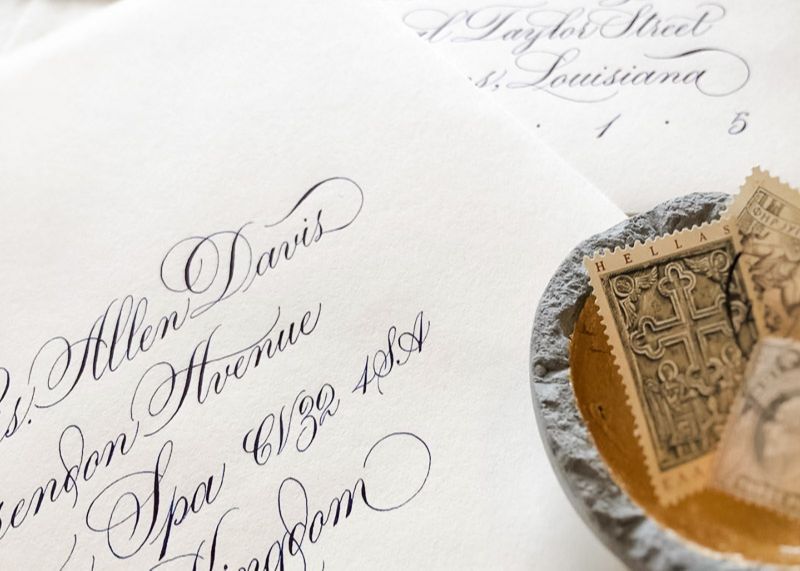 Taylor Street
s, Louisiana
1 5
s. Allen Davis
rendon Avenue
Spa CV32 4SA
Kingdom
HELLAS